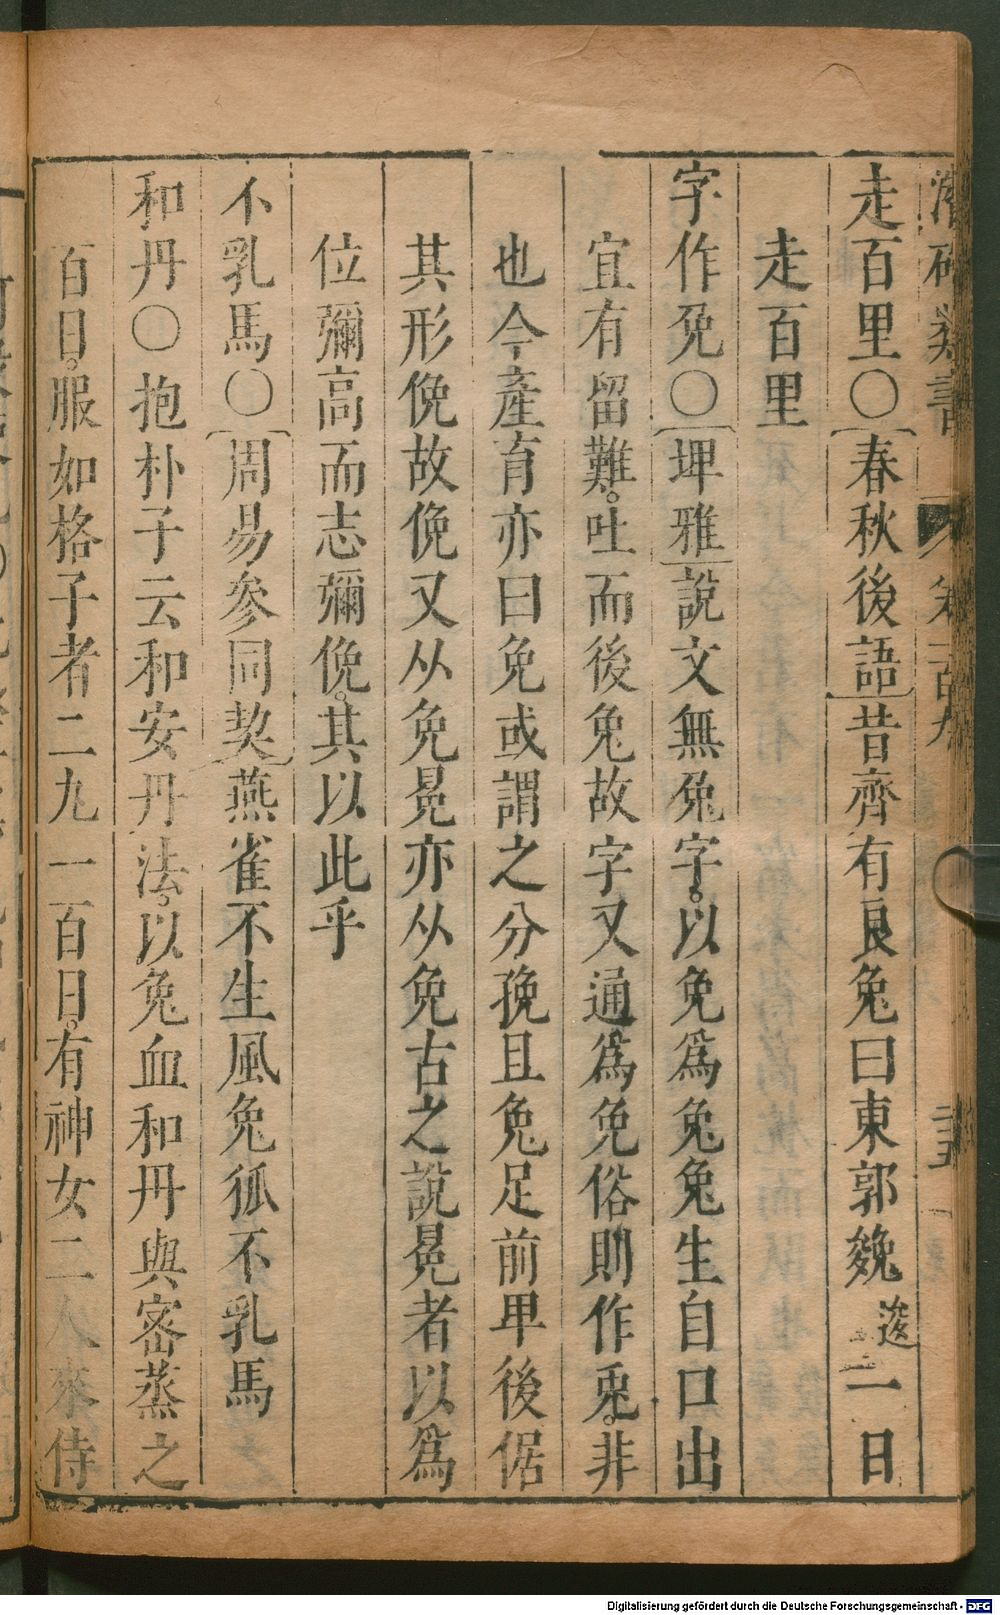 潛確類書 卷一百九 二十五
走百里○春秋後語昔齊有良兔曰東郭㕙逡一日
走百里
字作免○埤雅說文無免字。以兔爲兔兔生自口出
宜有留難。吐而後兔故字又通爲免俗則作兎。非
也今產育亦曰免或謂之分㝃且兔足前卑後倨
其形俛故俛又从免冕亦从免古之說冕者以爲
位彌高而志彌俛。其以此乎
不乳馬○周易參同契燕雀不生風兔狐不乳馬
和丹○抱朴子云和安丹法。以兔血和丹與密蒸之
百日。服如格子者二九一百日。有神女二人來侍
Digitalisierung gefördert durch die Deutsche Forschungsgemeinschaft - DFG